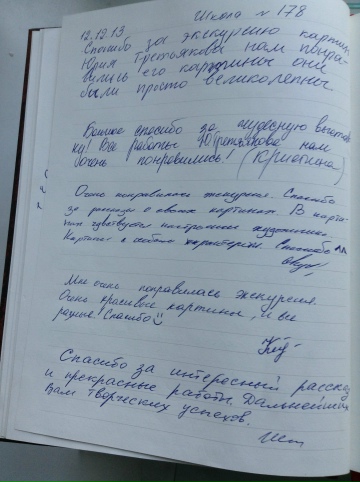 Школа № 178
12.12.13
Спасибо за экскурсию картин
Юрия Третьякова нам понра-
вились его картины они
были просто великолепны.
Большое спасибо за чудесную выстав
ку! Все работы Ю. Третьякова нам
очень понравились! (Кристина)
Очень понравилась экскурсия. Спасибо
за рассказы о своих картинах. В карти-
нах чувствуется настроение художника.
Картины с особым характером. Спасибо
Мне очень понравилась экскурсия.
Очень красивые картины, и вы
! Спасибо
Спасибо за интересный рассказ
и прекрасные работы. Дальнейших
Вам творческих успехов.